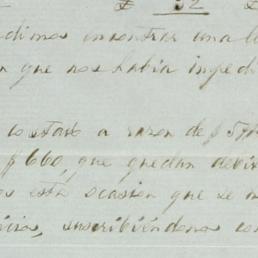 £ 32 £
dimos encontrar una l
n que nos habia imped
costado a razon de $
$660, que quedan
esta ocasion que se
cia, suscribiéndome co